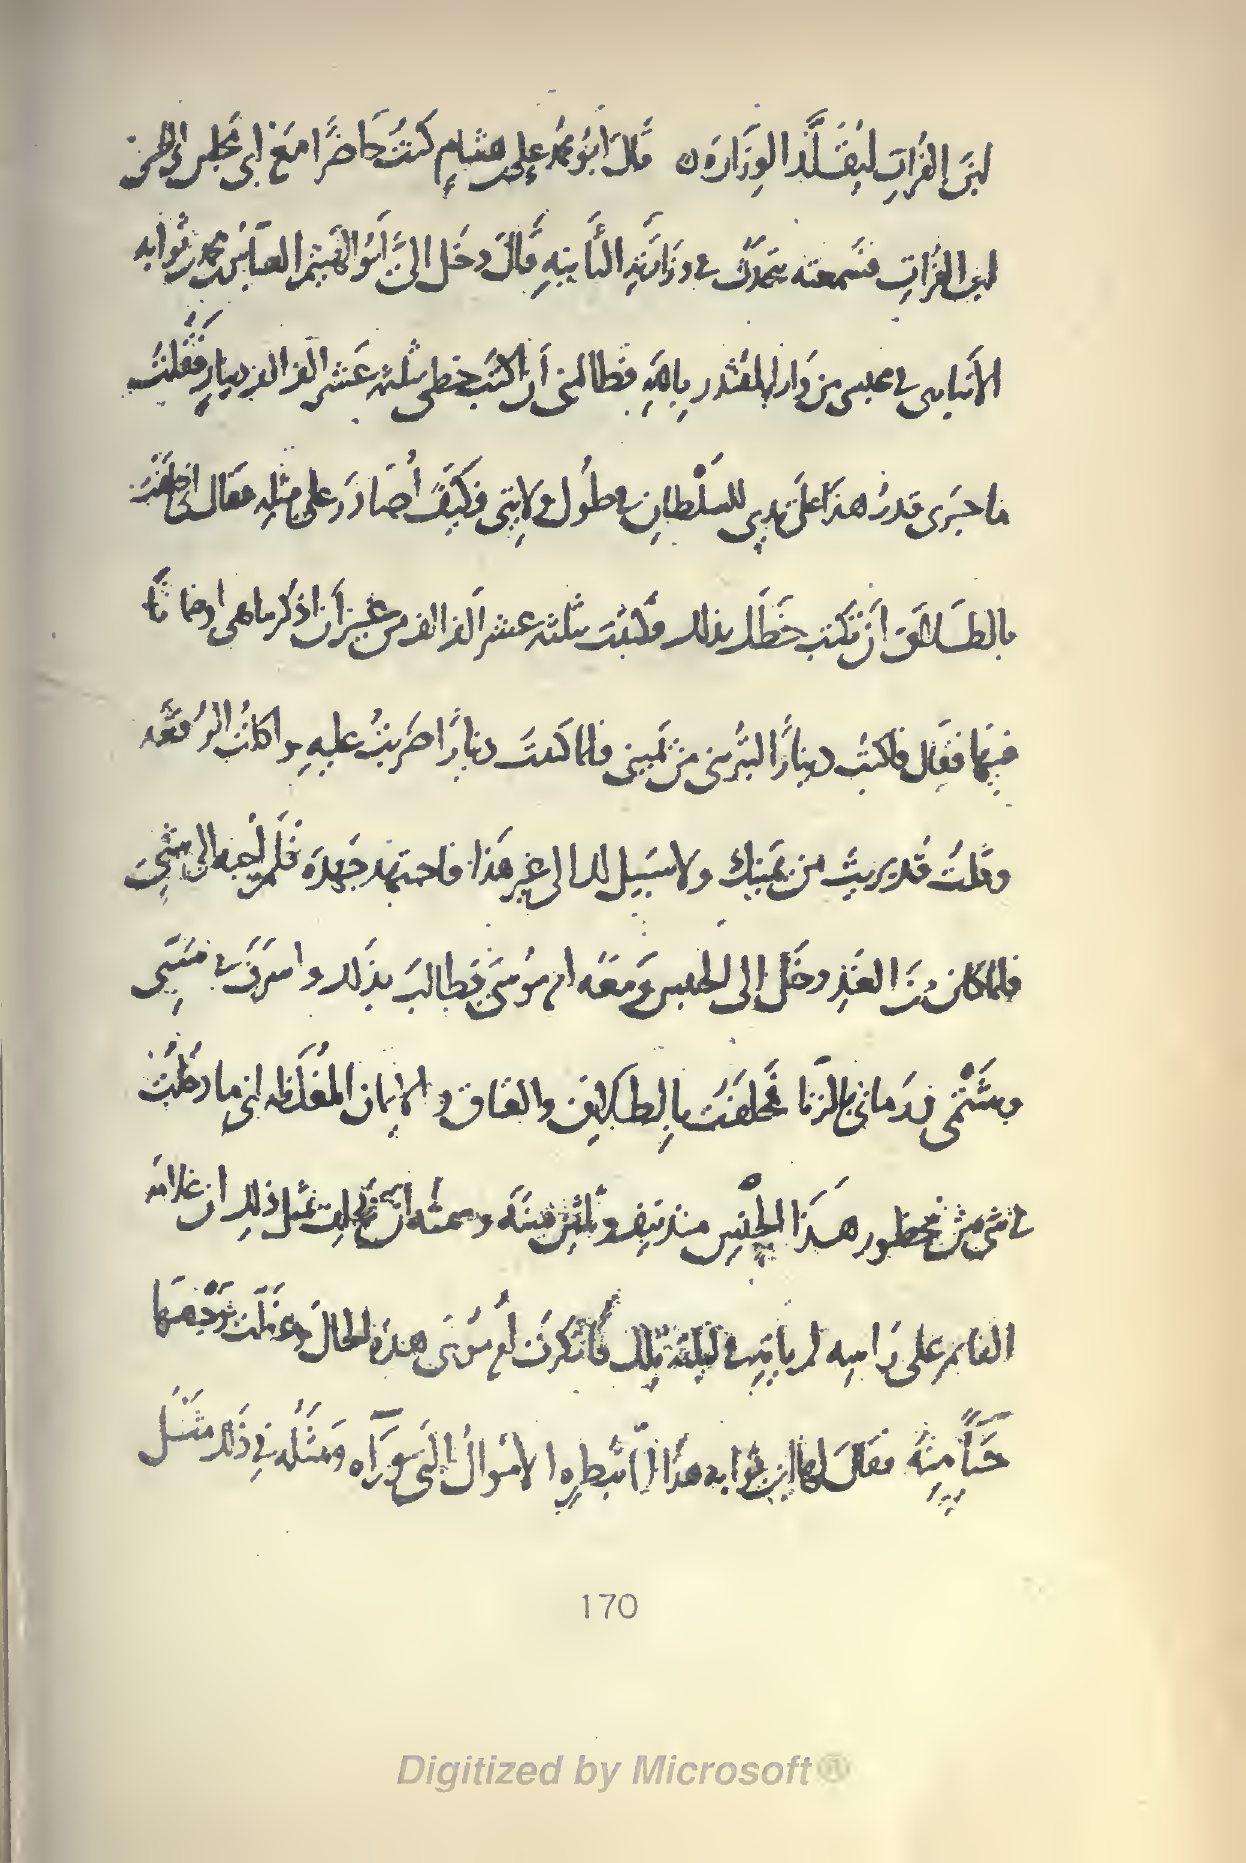 ابن الفرات ليتقلد الوزارة ٥ قال ابو محمد على بن هشام كنت حاضرا مع ابى مجلس ابى الحسن
ابن الفرات فسمعته يتحدث فى وزارته الثانيه قال دخل الىّ ابو الهيثم العباس بن محمد بن ثوابه
الانبارى فى محبسى من دار المقتدر بالله فطالبنى ان اكتب خطى بثلثه عشر الف الف دينار فقلت
ما جرى قدر هذا على يدى للسلطان فى طول ولايتى فكيف أصادر على مثله فقال قد حلفت
بالطلاق ان تكتب خطك بذلك فكتبت ثلثه عشر الف الف من غير ان اذكر ما هى
فيها فقال فاكتب دينارا لتبرئنى من يمينى فلما كتبت دينارا ضربت عليه واكلت الرقعه
وقلت قد بريت من يمينك ولا سبيل لك الى غير هذا فاجتهد جهده فلم اجبه الى شىء
فلما كان من الغد دخل الى الحبس ومعه ام موسى فطالب بذلك واسرف فى سبى
وشتمى ورمانى بالزنا فحلفت بالطلاق والعتاق والايمان المغلظه انى ما دخلت
فى شى من محظور هذا الجنس منذ نيف وثلثين سنه وسمته ان يحلف بمثل ذلك ان غلامه
القايم على راسه لم ياته فى ليلته تلك فانكرت ام موسى هذه الحال وغطت وجهها
حياً منه فقال لها ابن ثوابه هذا ابطره الاموال التى وراه ومثله فى ذلك مثل
170
Digitized by Microsoft®